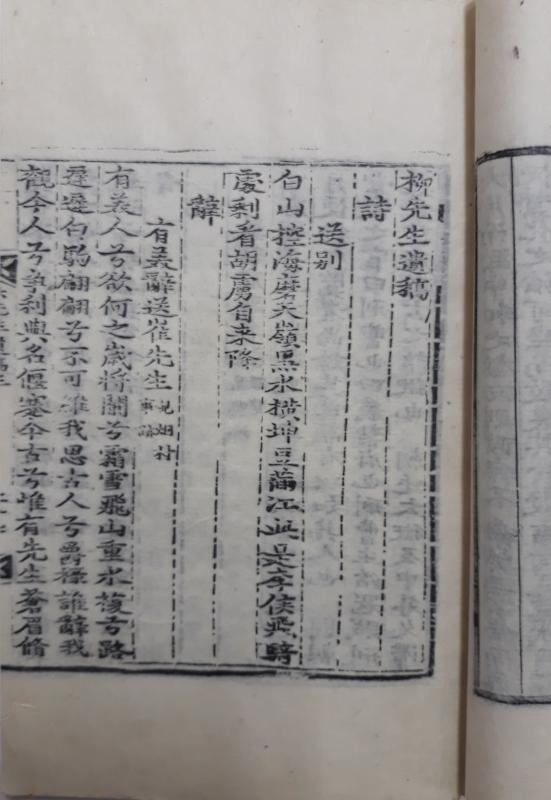 柳先生遺稿
詩
送別
白山控海磨天嶺黑水橫坤豆滿江此是李侯飛騎
處剩看胡虜自来降
辭
有義辭送崔先生
有義人兮欲何之歲將闌兮霜雪飛山重水複兮路
邅邅白駒翩翩兮不可維我思古人兮爵祿誰辭我
觀今人兮爭利與名偃蹇今古兮唯有先生蒼眉脩